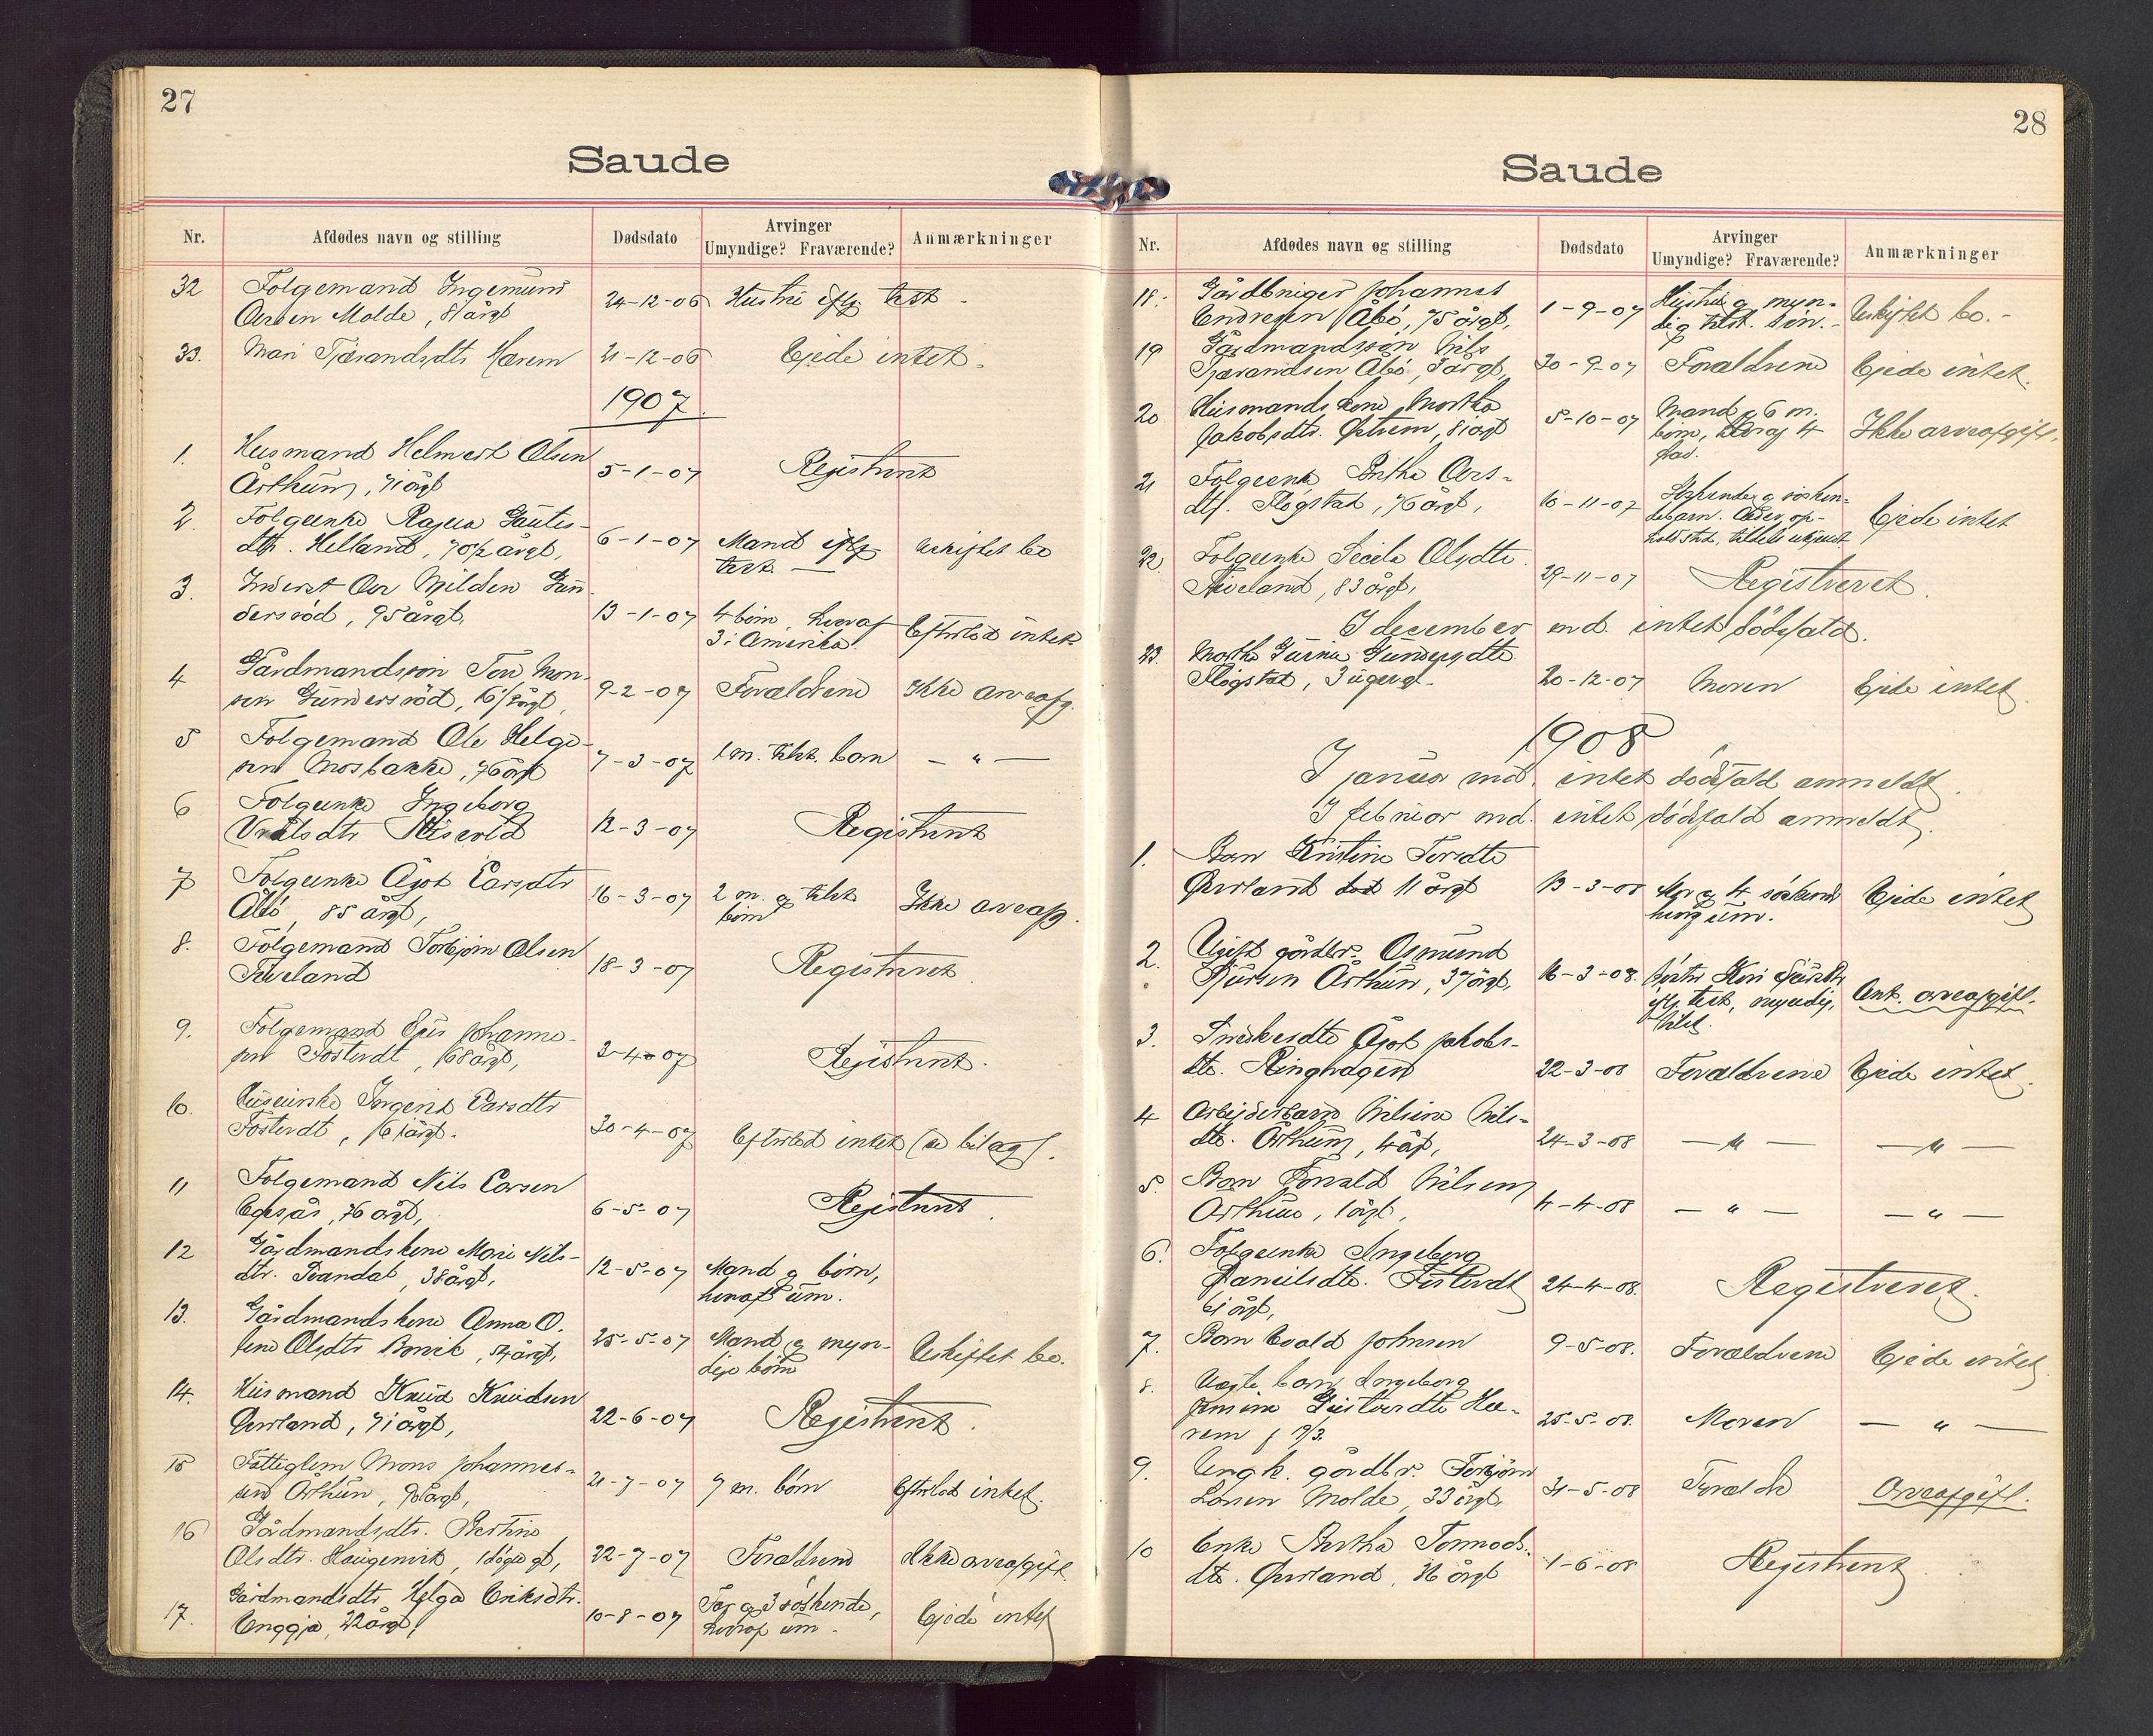 27
Saude
Nr. Afdødes navn og stilling Dødsdato Arvinger Umyndige? Fraværende? Anmærkninger
32 Folgemand Ingemund
Olsen Molde, 81 årgl 24-12-06 Hustru iflg test
33. Mari Tjærandsdtr Hærem 21-12-06 Ejede intet.
1907.
1. Husmand Helmert Olsen
Århuus, 71 årgl 5-1-07 Registreret
2. Folgeenke Gautes-
dtr. Helland, 70½ årgl, 6-1-07 Mand iflg
test. — uskiftet bo
3. Inderst Milden Gun-
dersröd, 95 årgl, 13-1-07 4 börn, hvoraf
3 i Amerika. Efterlod intet
4 Gårdmandssön Tore Mon-
sen Gundersröd, 9-2-07 Forældrene Ikke arveafg.
5 Folgemand Ole Helge-
sen Mosbakke, 76 årgl 7-3-07 1 m. tilst. barn — " —
6 Folgeenke Ingeborg
12-3-07 Registreret
7 Folgeenke Ågot Larsdtr
Åbö, 85 årgl, 16-3-07 2 m. og tilst.
börn Ikke arveafg.
8. Folgemand Torbjörn Olsen
Tveland 18-3-07 Registreret
9. Folgemand Johanne-
sen Fosterdt, 68 årgl, 2-4-07 Registreret.
10. Ingerid Larsdtr
Fosterdt, 61 årgl. 30-4-07 Efterlod intet (se bilag).
11 Folgemand Nils Larsen
76 årgl, 6-5-07 Registreret.
12 Gårdmandskone Mari Nils-
dtr. 38 årgl, 12-5-07 Mand og börn,
hvoraf um.
13. Gårdmandskone Anna O.
line Olsdtr 25-5-07 Mand og myn-
dige börn Uskiftet bo.
14. Husmand Knud Knudsen
Øvrland, 71 årgl, 22-6-07 Registreret.
15 Fattiglem Mons Johannes-
sen Århuus, 21-7-07 7 m. börn Efterlod intet.
16 Gårdmandsdtr. Bertine
Olsdtr. Haugenvik, 1 døgn gl, 22-7-07 Forældrene Ikke arveafgift
17. Gårdmandsdtr Helga Eriksdtr.
22 årgl, 10-8-07 Far og 3 söskende,
hvoraf um. Ejede intet
28
Saude
Nr. Afdødes navn og stilling Dødsdato Arvinger Umyndige? Fraværende? Anmærkninger
18. Gårdbruger Johannes
Endresen Åbö, 75 årgl, 1-9-07 Hustru og myn-
dig tilst. sön. Uskiftet bo.
19 Gårdmandssön Nils
Tjærandsen Åbö, 3 årgl, 30-9-07 Forældrene Ejede intet.
20 Husmandskone Martha
Jakobsdtr. Østrem, 81 årgl 5-10-07 Mand og 6 m.
börn, hvoraf 4
frav. Ikke arveafgift.
21 Folgeenke Brithe Lars-
dtr. Fløgstad, 76 årgl, 10-11-07 Söskende og sösken-
debarn.
Ejede intet
22. Folgeenke Secila Olsdtr.
Tveland, 83 årgl, 29-11-07 Registreret.
I december md. intet dödsfald.
23. Marthe Gurine Gundersdtr.
Fløgstad, 3 ugergl. 20-12-07 Moren Ejede intet
1908
I januar md. intet dödsfald anmeldt.
I februar md. intet dödsfald anmeldt.
1. Barn Kristine Torsdtr
Øvrland 11 årgl 13-3-08 Mor og 4 söskend
hvoraf um. Ejede intet
2. Ugift gårdbr. Osmund
Sjursen Århuus, 37 årgl, 16-3-08. Söster Kari Sjursdtr
iflg. test., myndig,
tilst. Ank. arveafgift.
3. Ågot Jakobs-
dtr. Ringhagen 22-3-08 Forældrene Ejede intet.
4 Arbejderbarn Nilsine Nils-
dtr. Århuus, 4 årgl, 24-3-08 — " — — " —
5. Barn Nilsen
Århuus, 1 årgl, 4-4-08 — " — — " —
6. Folgeenke Ingeborg
Danielsdtr. Fosterdt
61 årgl, 24-4-08. Registreret.
7. Barn Evald Johnsen 9-5-08. Forældrene Ejede intet
8. Uægte barn Ingeborg
Hæ-
rem 25-5-08. Moren — " —
9. Ungk. gårdbr. Torbjörn
Larsen Molde, 33 årgl, 31-5-08 Forældre Arveafgift.
10 Enke Bertha Tormods-
dtr. Øvrland, 76 årgl 1-6-08 Registreret